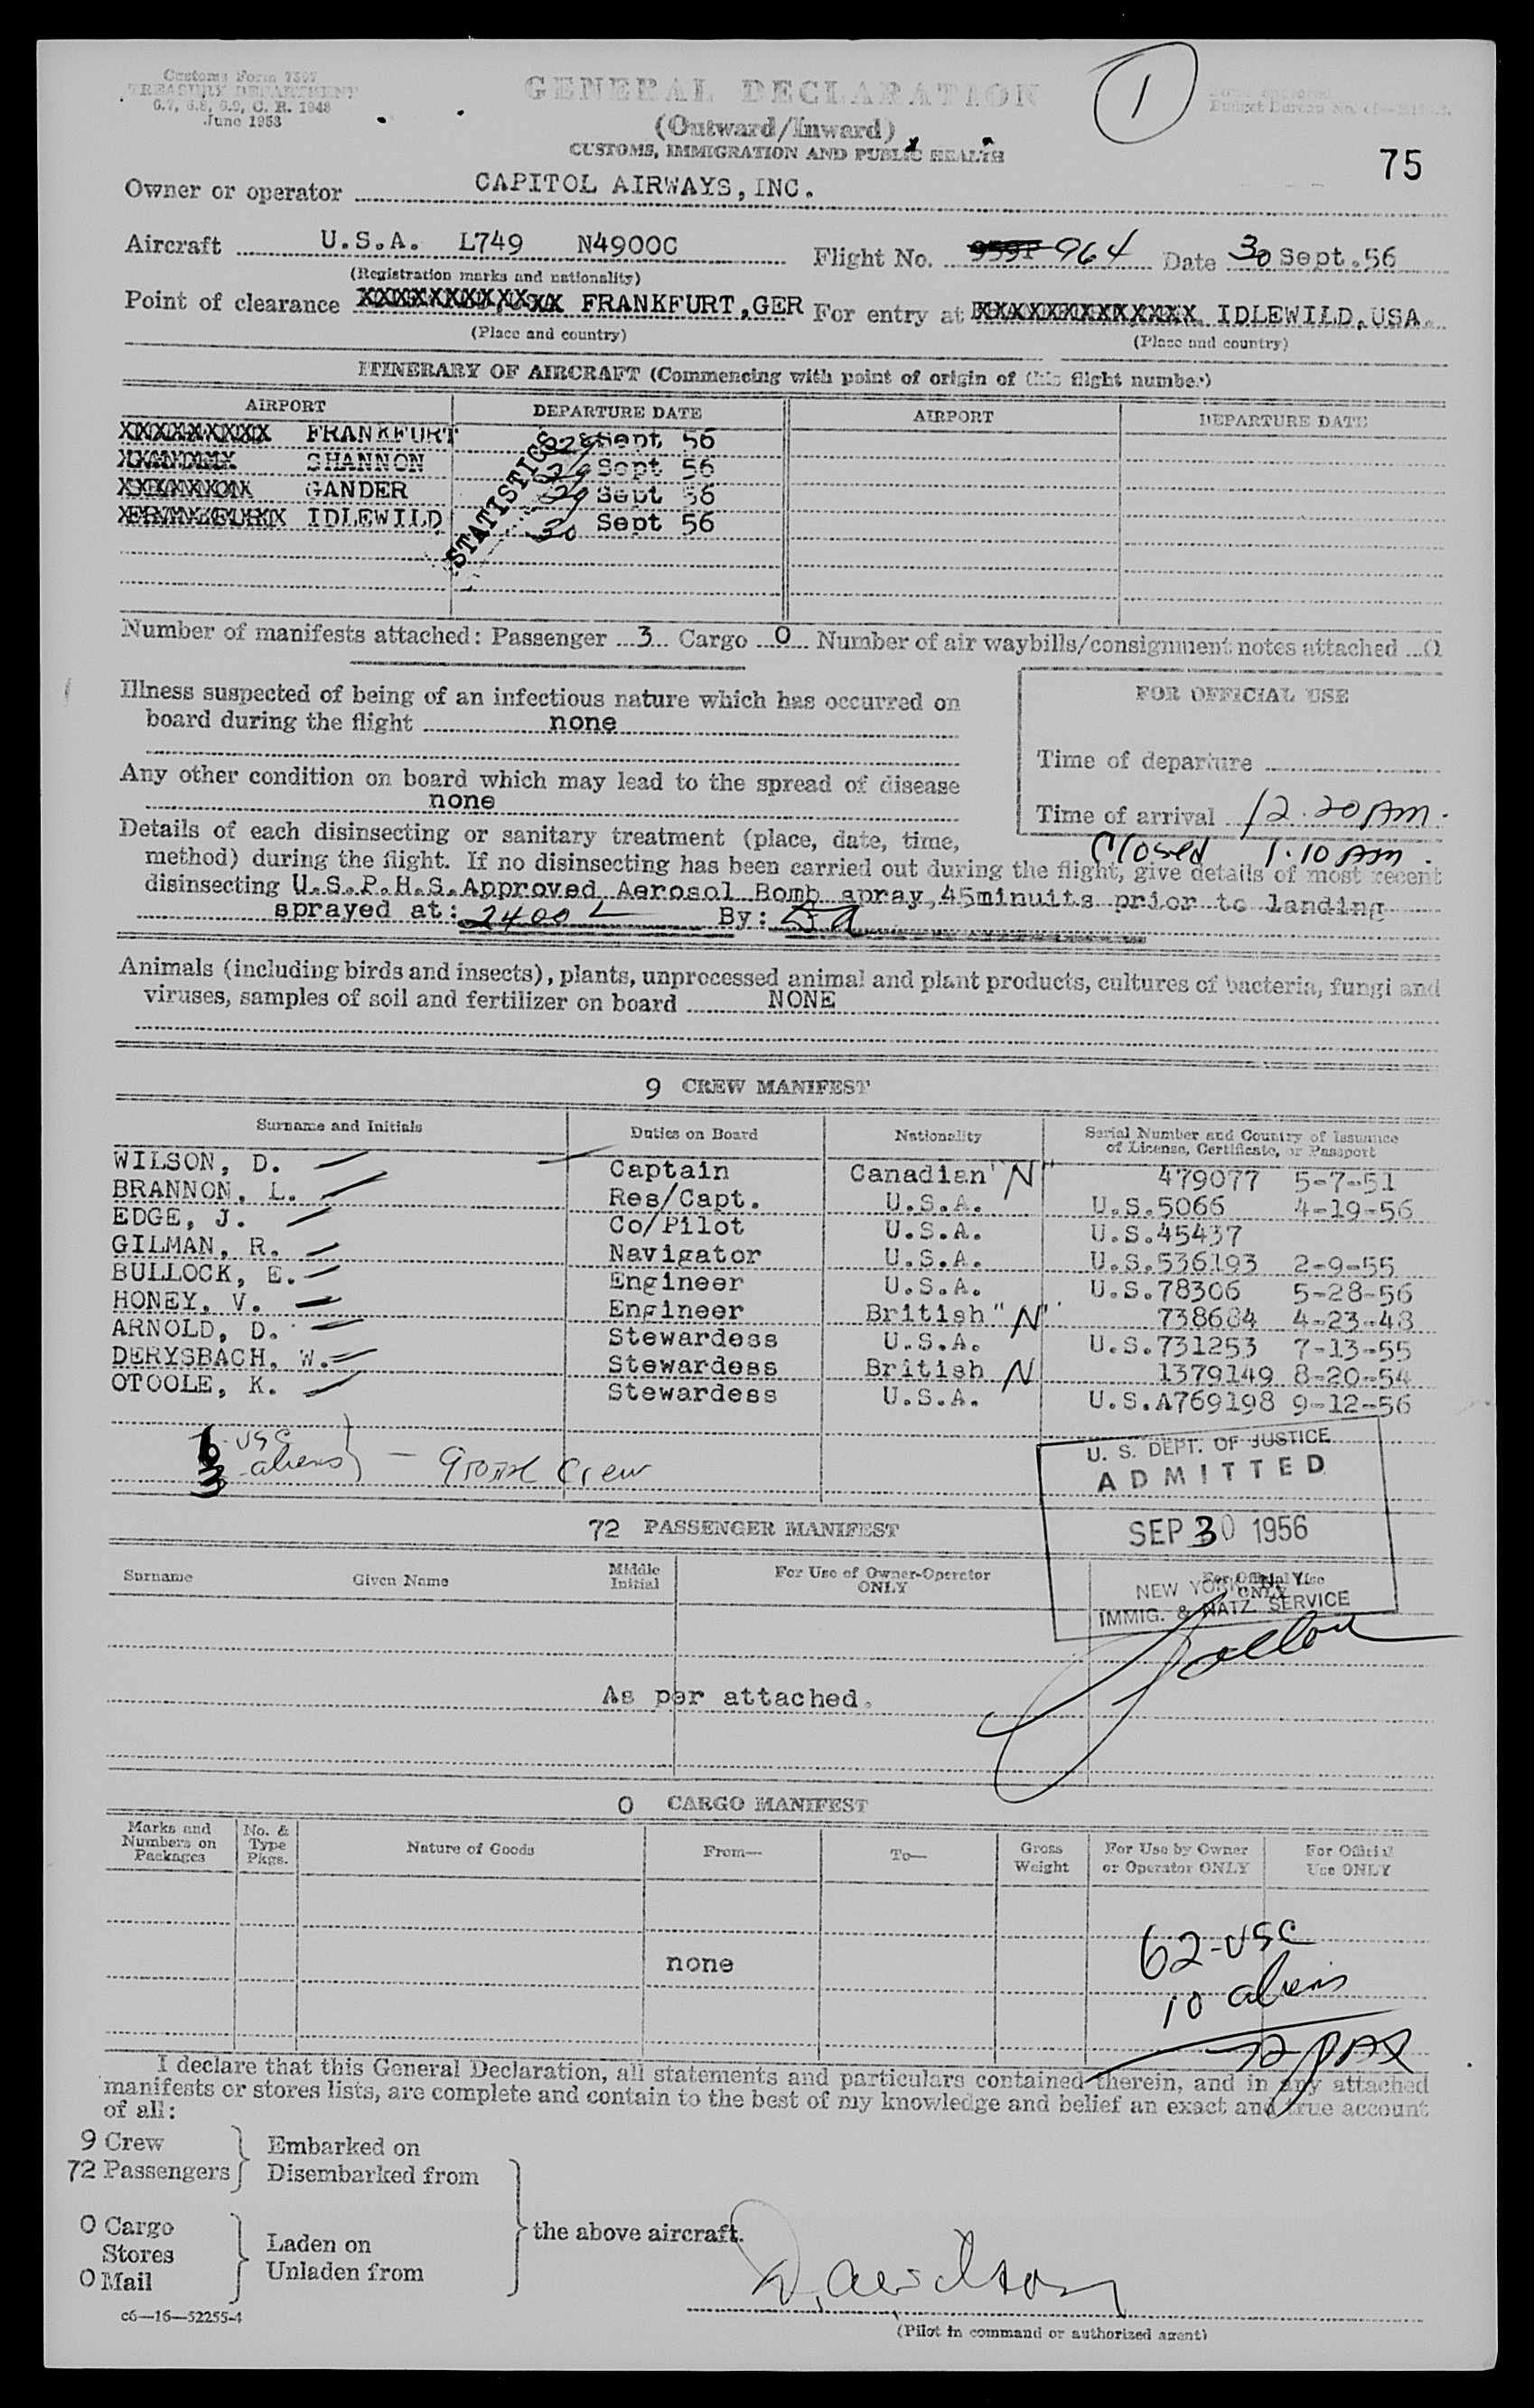 Customs Form 7507
TREASURY DEPARTMENT
6.7, 6.8, 6.9, C. R. 1943
June 1953
GENERAL DECLARATION
(Outward/Inward)
CUSTOMS, IMMIGRATION AND PUBLIC HEALTH
1
Budget Bureau No.
75
Owner or operator CAPITOL AIRWAYS, INC.
Aircraft U.S.A. L749 N4900C Flight No. 964 Date 30 Sept. 56
(Registration marks and nationality)
Point of clearance FRANKFURT, GER For entry at IDLEWILD, USA.
(Place and country) (Place and country)
ITINERARY OF AIRCRAFT (Commencing with point of origin of this flight number)
AIRPORT DEPARTURE DATE AIRPORT DEPARTURE DATE
FRANKFURT Sept 56
SHANNON 29 Sept 56
GANDER 29 Sept 56
IDLEWILD 30 Sept 56
STATISTICS
Number of manifests attached: Passenger 3 Cargo 0 Number of air waybills/consignment notes attached 0
Illness suspected of being of an infectious nature which has occurred on
board during the flight none
FOR OFFICIAL USE
Time of departure
Any other condition on board which may lead to the spread of disease
none
Time of arrival 12.20 AM.
Closed 1.10 AM.
Details of each disinsecting or sanitary treatment (place, date, time,
method) during the flight. If no disinsecting has been carried out during the flight, give details of most recent
disinsecting U.S.P.H.S. Approved Aerosol Bomb spray, 45minuits prior to landing
sprayed at: 2400 By:
Animals (including birds and insects), plants, unprocessed animal and plant products, cultures of bacteria, fungi and
viruses, samples of soil and fertilizer on board NONE
9 CREW MANIFEST
Surname and Initials Duties on Board Nationality Serial Number and Country of Issuance
of License, Certificate, or Passport
WILSON, D. Captain Canadian "N" 479077 5-7-51
BRANNON, L. Res/Capt. U.S.A. U.S.5066 4-19-56
EDGE, J. Co/Pilot U.S.A. U.S.45437
GILMAN, R. Navigator U.S.A. U.S.536193 2-9-55
BULLOCK, E. Engineer U.S.A. U.S.78306 5-28-56
HONEY, V. Engineer British "N" 738684 4-23-48
ARNOLD, D. Stewardess U.S.A. U.S.731253 7-13-55
DERYSBACH, W. Stewardess British N 1379149 8-20-54
OTOOLE, K. Stewardess U.S.A. U.S.A769198 9-12-56
6 USC
3 aliens - Crew
U. S. DEPT. OF JUSTICE
ADMITTED
SEP 30 1956
NEW YORK, N. Y.
IMMIG. & NATZ. SERVICE
72 PASSENGER MANIFEST
Surname Given Name Middle Initial For Use of Owner-Operator ONLY For Official Use ONLY
As per attached.
0 CARGO MANIFEST
Marks and Numbers on Packages No. & Type Pkgs. Nature of Goods From— To— Gross Weight For Use by Owner or Operator ONLY For Official Use ONLY
none
62-USC
10 aliens
72 PAX
I declare that this General Declaration, all statements and particulars contained therein, and in any attached
manifests or stores lists, are complete and contain to the best of my knowledge and belief an exact and true account
of all:
9 Crew
72 Passengers
Embarked on
Disembarked from
0 Cargo
Stores
0 Mail
Laden on
Unladen from
the above aircraft.
c6—16—52255-4
(Pilot in command or authorized agent)